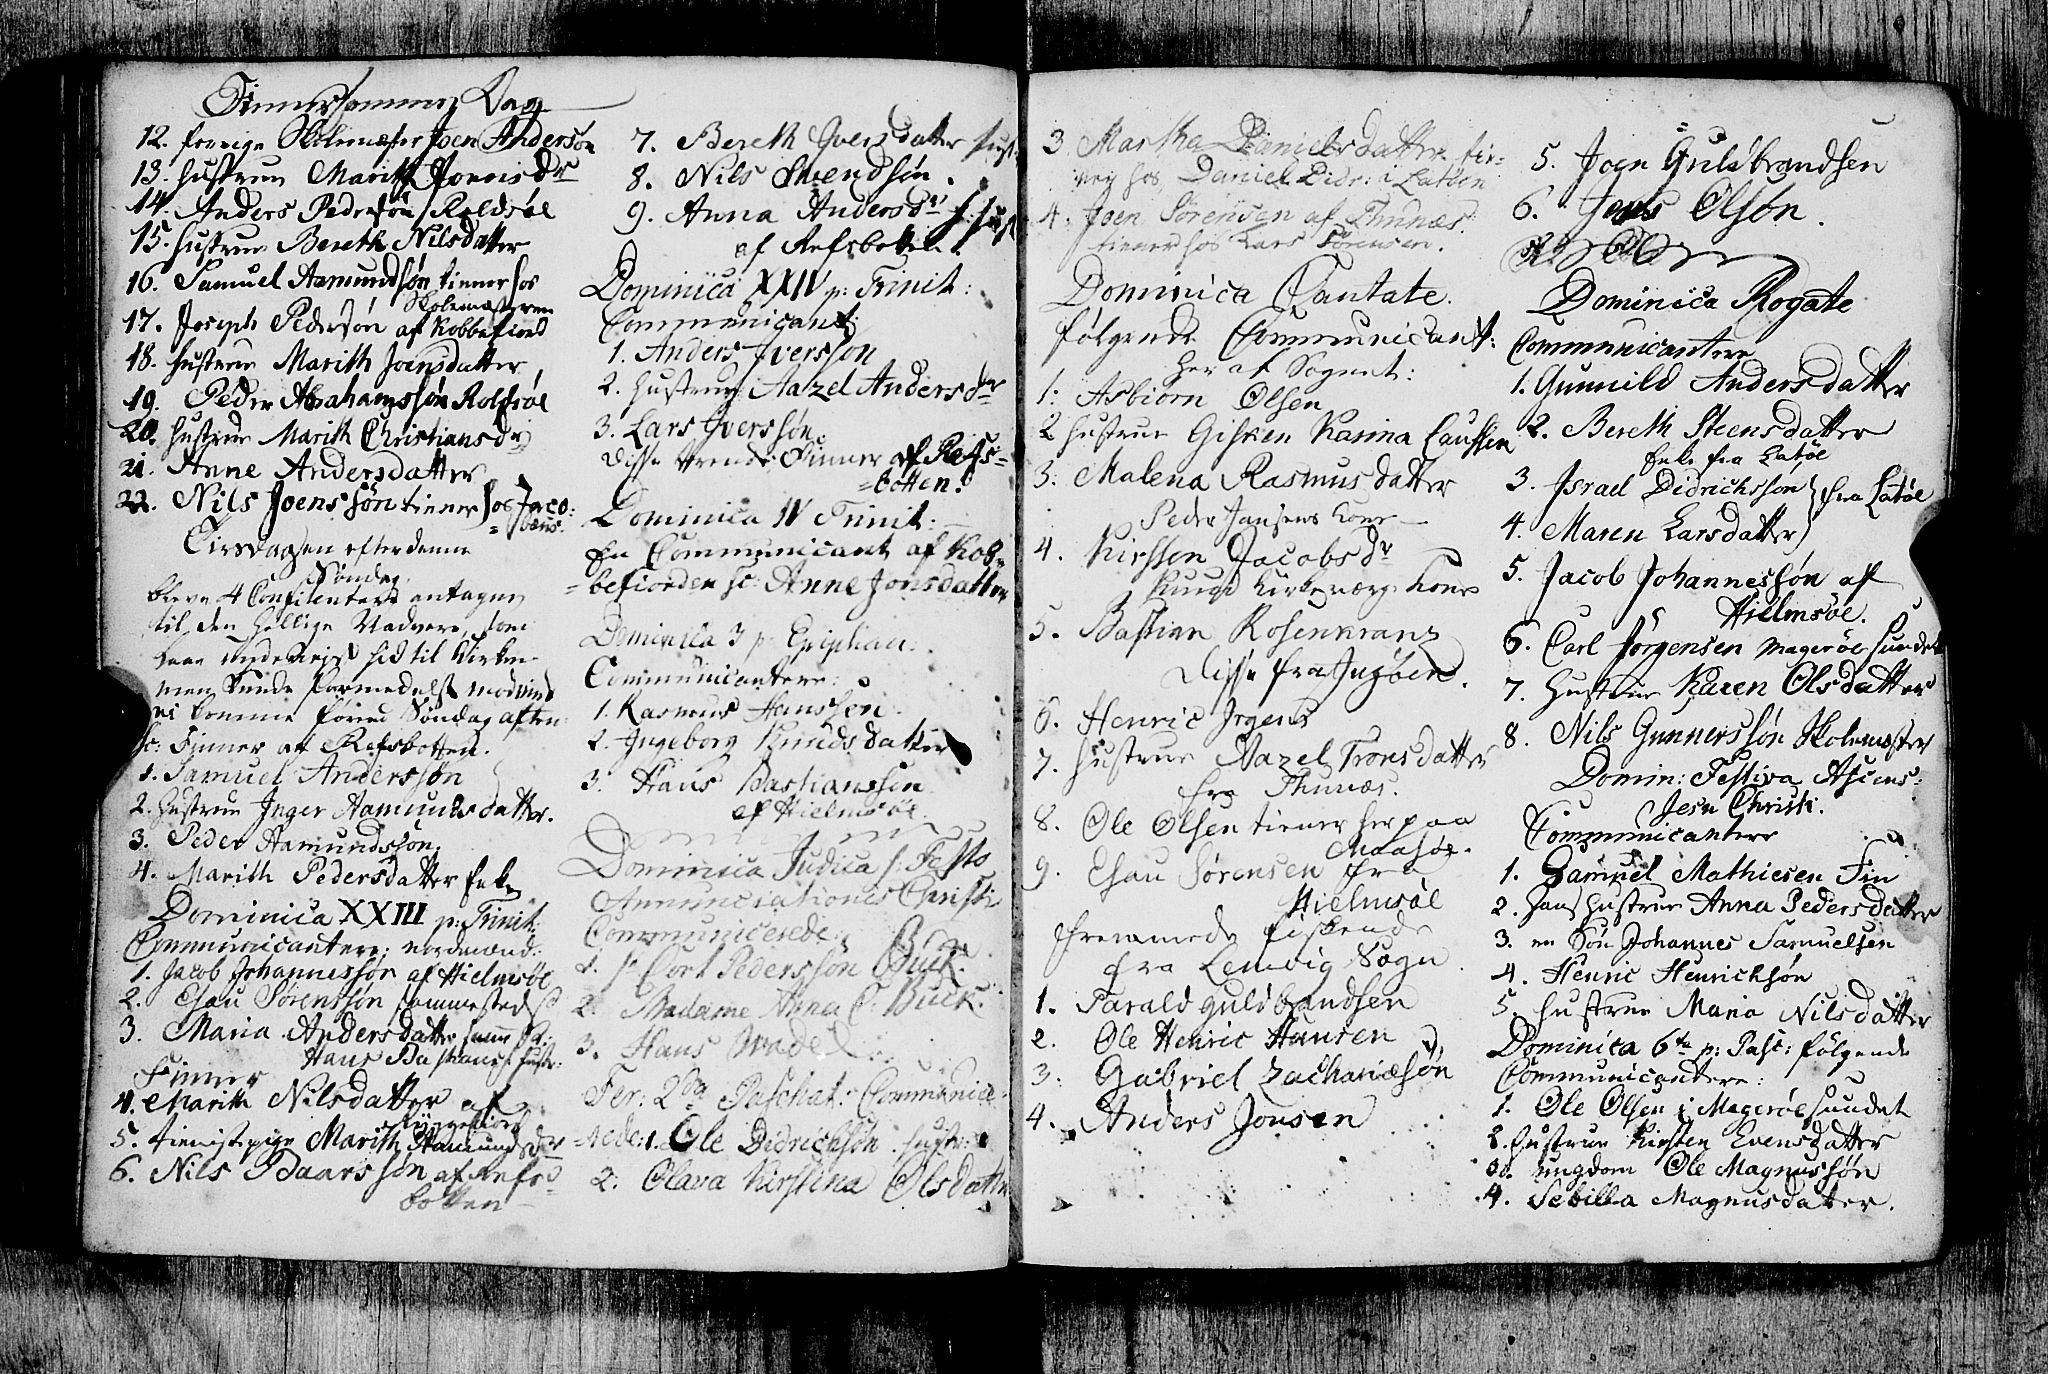 12. forrige Skolemester Joen Andersøn
13. hustrue Marith Joensdr
14. Anders Pedersøn Rolfsøe
15. hustrue Bereth Nilsdatter
16. Samuel Aamundsøn tiener hos
Skolemesteren
17. Joseph Pedersøn af Kobbefiord
18. hustrue Marith Joensdatter
19. Peder Abrahamssøn Rolfsøe
20. hustrue Marith Christiansdr
21. Anne Andersdatter
22. Nils Joenssøn tiener hos Jaco:
= bens.
Tirsdagen efter denne
Søndag
bleve 4 Confitentere antagne
til den hellige Nadvere, som
vare underveis hid til Kirken
men kunde formedelst modvind
ei komme førend Søndag aften
sc: Finner af Refsbotten.
1. Samuel Anderssøn
2. hustrue Inger Aamundsdatter.
3. Peder Aamundssøn
4. Marith Pedersdatter Enke
Dominica XXIII p: Trinit:
Communicantere: nordmænd:
1. Jacob Johannessøn af Hielmsøe
2. Esau Sørenssøn sammesteds
3. Maria Andersdatter
Hans Bastianss: hustr:
Finner
4. Marith Nilsdatter af
5. tienistepige Marith Aamundsdr
6. Nils Baarssøn af Refs=
botten
7. Bereth Iversdatter hust:
8. Nils Svendsøn.
9. Anna Andersdr
af Refsbotten.
Dominica XXIV p: Trinit:
Communicant:
1. Anders Iverssøn
2. hustrue Aazel Andersdr
3. Lars Iverssøn
disse vare Finner af Refs=
=botten.
Dominica IV Trinit:
En Communicant af Kob=
=befiorden sc: Anne Jonsdatter
Dominica 3 p: Epiphan:
Communicantere:
1. Rasmus Hanssen
2. Ingeborg Knudsdatter
3. Hans Bastianssen
af Hielmsøe.
Dominica Judica s: Festo
Annunciationis Christi
Communicerede:
1. Hr Cort Pederssøn Buck.
2. Madame Anna C: Buck.
3. Hans
Fer: 2da Paschat: Communice=
=rede: 1. Ole Didrichsøn hustr:
2. Olava Kirstina Olsdatter
3 Martha Danielsdatter
hos Daniel Didr: i Latøen
4. Joen Sørensen af Thunæs.
tiener hos Lars Sørensen.
Dominica Cantate.
følgende Communicant:
her af Sognet:
1: Asbiørn Olsen
2 hustrue Gisken Karina Caussen
3: Malena Rasmusdatter
Peder Jansens Kone
4. Kirsten Jacobsdr
Knud Kirkeværges Kone
5. Bastian Rosenkranz
disse fra Ingøen.
6. Henric Irgens
7. hustrue Aazel Tronsdatter
fra Thunæs.
8. Ole Olsen tiener her paa
Maasøe.
9. Esau Sørensen fra
Hielmsøe
fremmede fiskende
fra Lenvig Sogn
1. Tarald Guldbrandsen
2. Ole Henric Hansen
3. Gabriel Zachariæsøn
4. Anders Jonsen
5. Joen Guldbrandsen
6. Jens Olsøn.
Dominica Rogate
Communicantere
1. Gunnild Andersdatter
2. Bereth Steensdatter
Enke fra Latøe
3. Israel Didrichssøn } fra Latøe
4. Maren Larsdatter
5. Jacob Johannessøn af
Hielmsøe.
6. Carl Jørgensen Magerøesundet
7. hustrue Karen Olsdatter
8. Nils Gunnerssøn Skolemester
Domin: Festiva Ascens:
Jesu Christi.
Communicantere
1. Samuel Mathiesen Fin
2. hans hustrue Anna Pedersdatter
3. en Søn Johannes Samuelsen
4. Henric Henrichsøn
5. hustrue Maria Nilsdatter
Dominica 6ta p: Pasc: følgende
Communicantere:
1. Ole Olsen i Magerøesundet
2. hustrue Kirsten Evensdatter
3. ungdom Ole Magnussøn
4. Sebilla Magnusdatter.